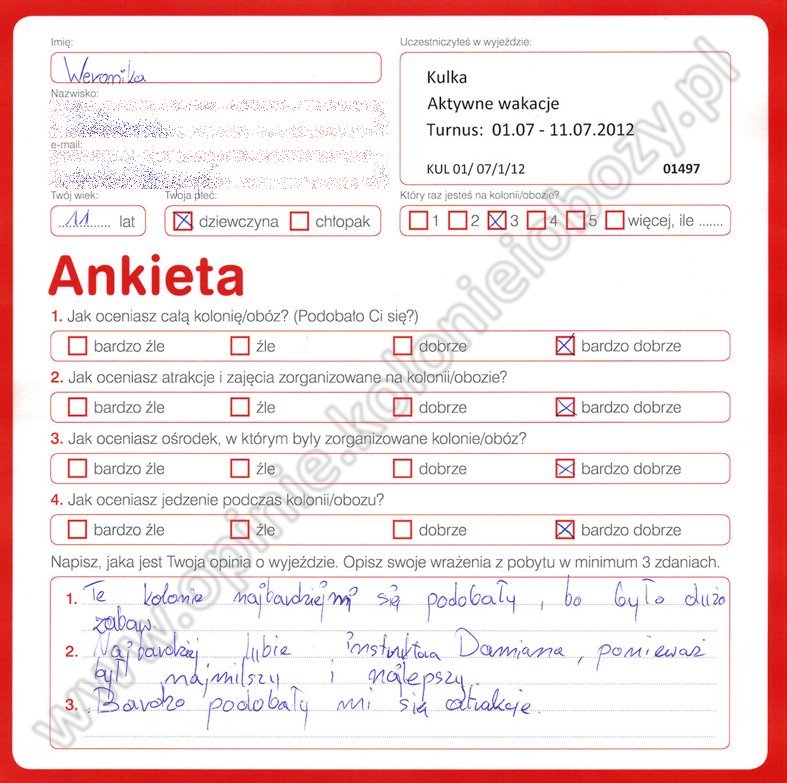 Imię:
Weronika
Nazwisko:
e-mail:
Twój wiek:
11 lat
Twoja płeć:
dziewczyna chłopak
Uczestniczyłeś w wyjeździe:
Kulka
Aktywne wakacje
Turnus: 01.07 - 11.07.2012
KUL 01/ 07/1/12 01497
Który raz jesteś na kolonii/obozie?
1 2 3 4 5 więcej, ile .......
Ankieta
1. Jak oceniasz całą kolonię/obóz? (Podobało Ci się?)
bardzo źle źle dobrze bardzo dobrze
2. Jak oceniasz atrakcje i zajęcia zorganizowane na kolonii/obozie?
bardzo źle źle dobrze bardzo dobrze
3. Jak oceniasz ośrodek, w którym były zorganizowane kolonie/obóz?
bardzo źle źle dobrze bardzo dobrze
4. Jak oceniasz jedzenie podczas kolonii/obozu?
bardzo źle źle dobrze bardzo dobrze
Napisz, jaka jest Twoja opinia o wyjeździe. Opisz swoje wrażenia z pobytu w minimum 3 zdaniach.
1. Te kolonie najbardziej mi się podobały, bo było dużo
zabaw.
2. Najbardziej lubie instruktora Damiana, ponieważ
był najmilszy i najlepszy.
3. Bardzo podobały mi się atrakcje.
www.opinie.kolonieiobozy.pl